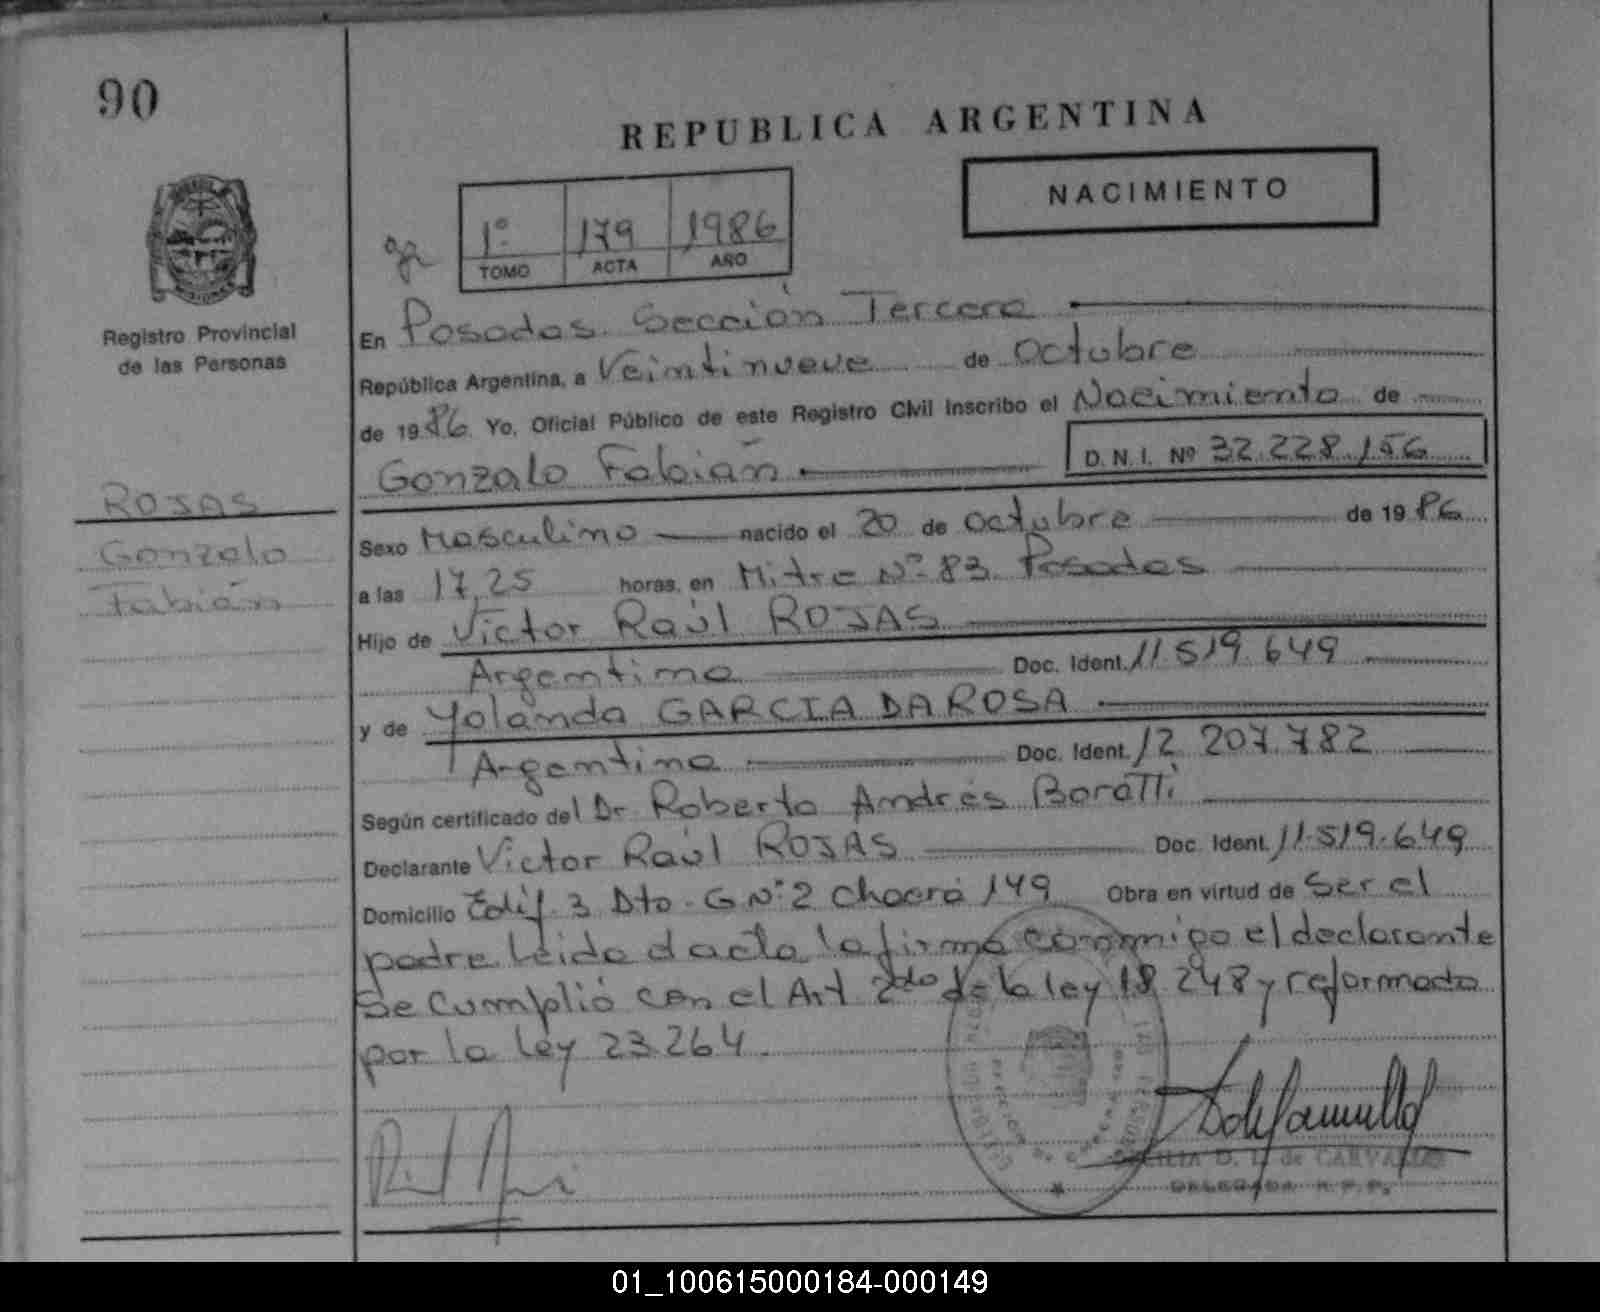 90
REPUBLICA ARGENTINA
NACIMIENTO
1º 179 1986
TOMO ACTA AÑO
MISIONES
Registro Provincial
de las Personas
En Posadas Sección Tercera
República Argentina, a Veintinueve de Octubre
de 1986 Yo, Oficial Público de este Registro Civil Inscribo el Nacimiento de
Gonzalo Fabián D.N.I. Nº 32.228.156
ROJAS
Gonzalo
Fabián
Sexo Masculino nacido el 20 de octubre de 1986
a las 17,25 horas, en Mitre Nº 83 Posadas
Hijo de Victor Raúl ROJAS
Argentino Doc. Ident. 11.519.649
y de Yolanda GARCIA DA ROSA
Argentina Doc. Ident. 12 207.782
Según certificado del Dr Roberto Andrés Boratti
Declarante Victor Raúl ROJAS Doc. Ident. 11.519.649
Domicilio Edif. 3 Dto. G Nº 2 Chacra 149 Obra en virtud de Ser el
padre Leida el acta la firma conmigo el declarante
Se Cumplió con el Art 2do de la ley 18.248 y reformada
por la Ley 23.264.
D. L. de CARVALLO
DELEGADA R.P.P.
01_100615000184-000149